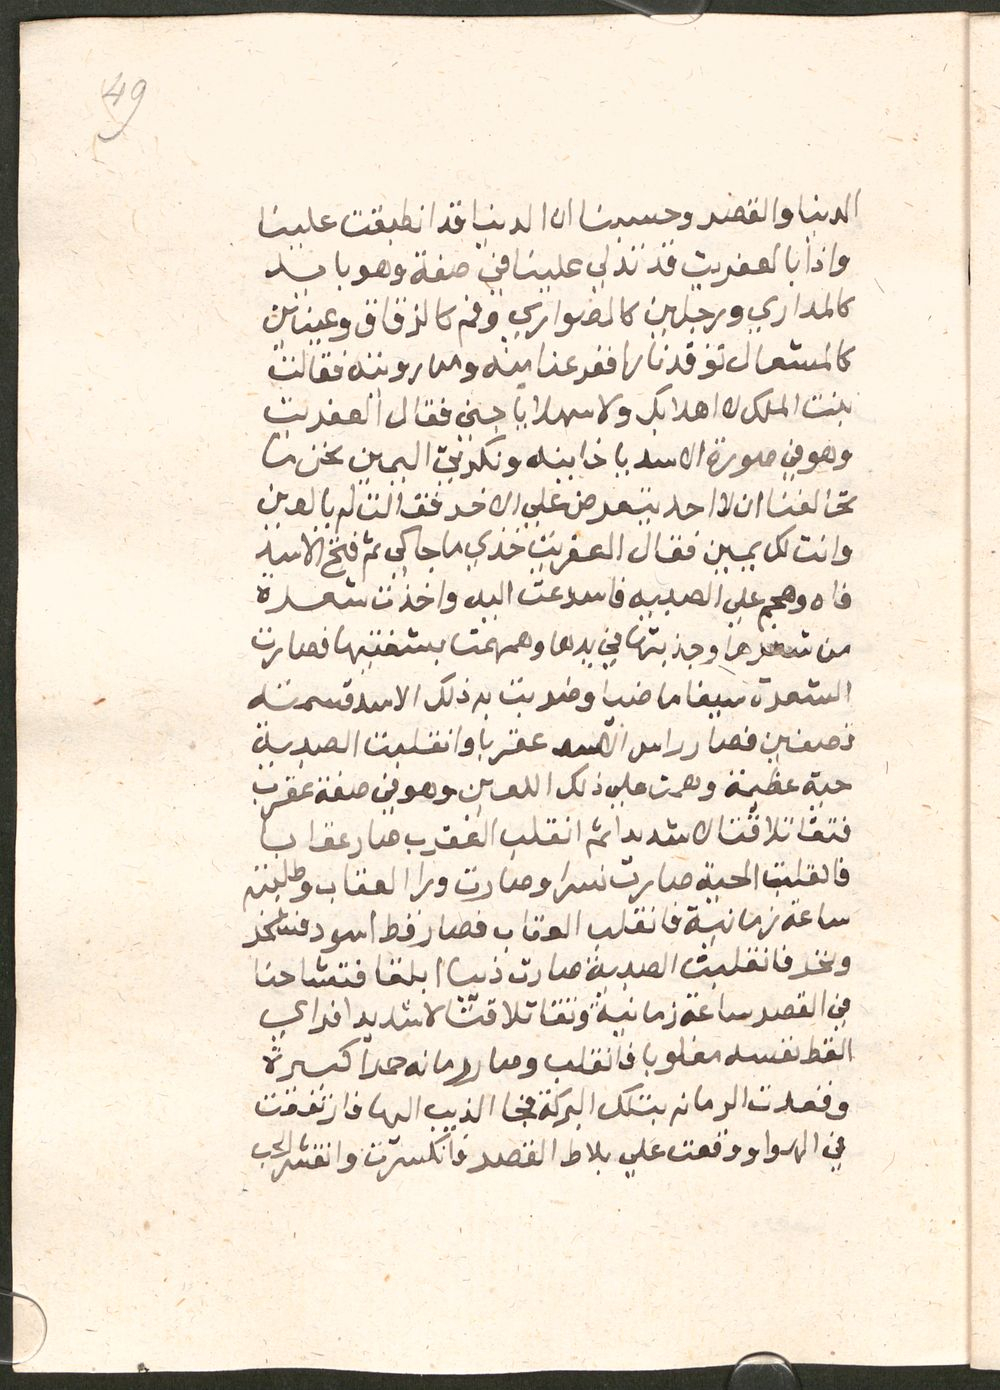 49
الدنيا والقصر وحسبنا ان الدنيا قد انطبقت علينا
واذا بالعفريت قد تدلي علينا في صفة وهو بايد
كالمداري ورجلين كالصواري وفم كالزقاق وعينين
كالمشعال توقد نارا ففزعنا منه ومن رويته فقالت
بنت الملك لا اهلا بك ولا سهلا يا جني فقال العفريت
وهو في صورة الاسد يا خاينه ونكرتي اليمين نحن ما
تحالفنا ان لا احد يتعرض علي الاخر فقالت له يا لعين
وانت لك يمين فقال العفريت خذي ما جاكي ثم فتح الاسد
فاه وهجم علي الصبيه فاسرعت اليه واخذت شعرة
من شعرها وجذبتها في يدها وهمهمت بشفتيها فصارت
الشعرة سيفا ماضيا وضربت به ذلك الاسد قسمته
نصفين فصار راس الاسد عقربا وانقلبت الصبية
حية عظيمة وهمت علي ذلك اللعين وهو في صفة عقرب
فتقاتلا قتالا شديدا ثم انقلب العقرب صار عقابا
فانقلبت الحية صارت نسرا وصارت ورا العقاب وطلبته
ساعة زمانية فانقلب العقاب فصار قط اسود فشخر
ونخر فانقلبت الصبية صارت ذيبا ابلقا فتشاحنا
في القصر ساعة زمانية وتقاتلا قتالا شديدا فراي
القط نفسه مغلوبا فانقلب وصار رمانه حمرا كبيرة
وقعدت الرمانه بتلك البركة فجا الذيب اليها فارتفعت
في الهوا ووقعت علي بلاط القصر فانكسرت وانتشر الحب